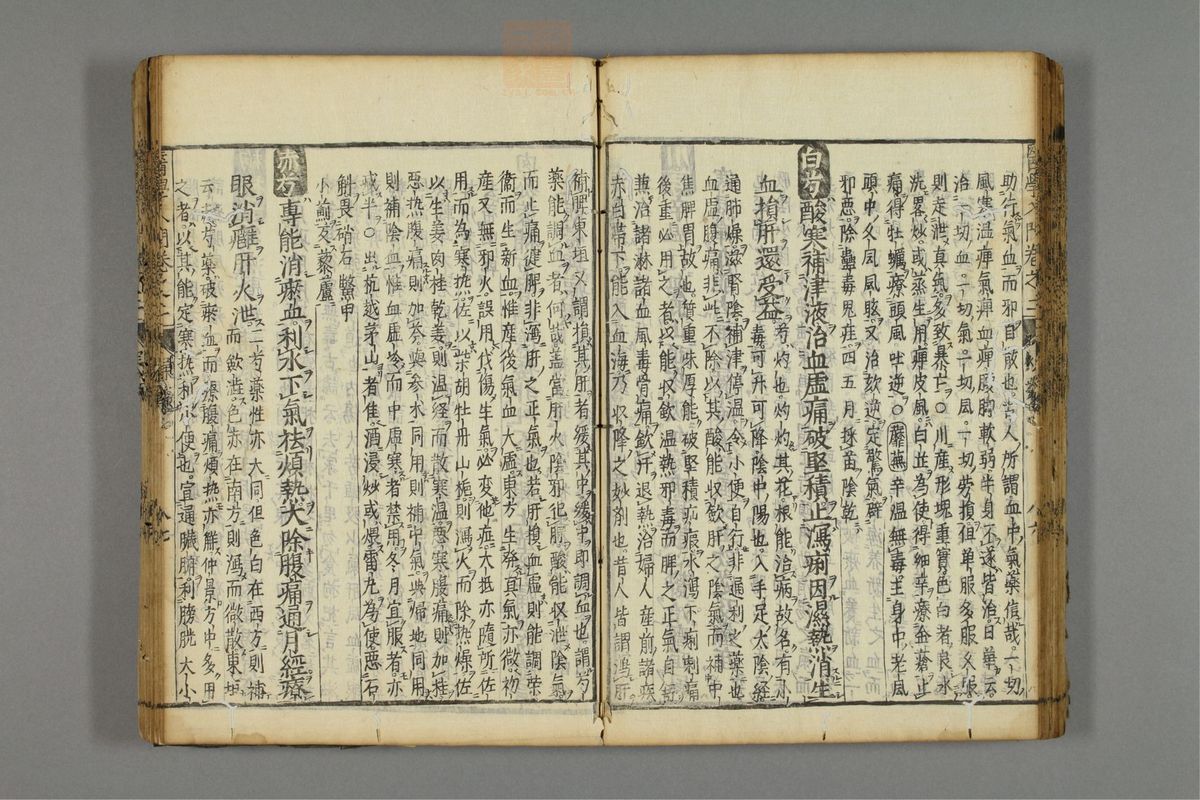 助行氣血而邪自散也昔人所謂血中氣藥信哉一切
風寒温痺氣滯血痺脚軟弱半身不遂皆治日華云
治一切血一切氣一切風一切勞損但單服多服久服
則走泄真氣多致暴亡○川産形塊重實色白者良水
洗畧炒或蒸生用痺皮風白芷為使得細辛療金瘡止
痛得牡蠣療頭風吐逆○蘼蕪辛温無毒主身中老風
頭中久風風眩又治欬逆定驚氣辟
邪惡除蠱毒鬼疰四五月採苗陰乾
白芍酸寒補津液治血虚痛破堅積止瀉痢因濕熱消生
血損肝還受益芍灼也灼灼其花根能治病故名有小
毒可升可降陰中陽也入手足太陰經
通肺燥滋腎陰補津停温令小便自行非通利之藥也
血虚腹痛非此不除以其酸能收歛肝之陰氣而補中
焦脾胃故也質重味厚能破堅積疝瘕水瀉下痢刺痛
後重必用之者以能收歛温熱邪毒而脾之正氣自健
兼治諸淋諸血風毒骨痛歛汗退熱浴婦人産前諸疾
赤白帶下能入血海乃収降之妙剤也昔人皆謂瀉肝
補脾東垣又謂損其肝者緩其中緩中即調血也謂芍
藥能調血者何哉盖當肝火陰邪犯脾酸能収泄陰氣
而止痛健脾非瀉肝之正氣也若肝損血虚則能調榮
衞而生新血惟産後氣血大虚東方生發真氣亦微初
産又無邪火誤用伐傷生氣必変他症大抵亦隨所佐
用而為寒热佐以柴胡牡丹山梔則瀉火而除热燥佐
以生姜肉桂乾姜則温經而散寒温惡寒腹痛則加桂
惡热腹痛則加芩與参朮同用則補中氣與歸地同用
則補陰血惟血虚冷而中虚寒者禁用冬月宜服者亦
戒半○出杭越茅山者佳酒浸炒或煨雷丸為使惡石
斛畏硝石鱉甲
小薊反藜蘆
赤芍專能消瘀血利水下氣祛煩熱大除腹痛通月經療
眼消癰肝火泄二芍藥性亦大同但色白在西方則補
而歛澁色赤在南方則瀉而微散東垣
云赤芍藥破瘀血而療腹痛煩热亦觧仲景方中多用
之者以其能定寒热利小便也宜通臟腑利膀胱大小